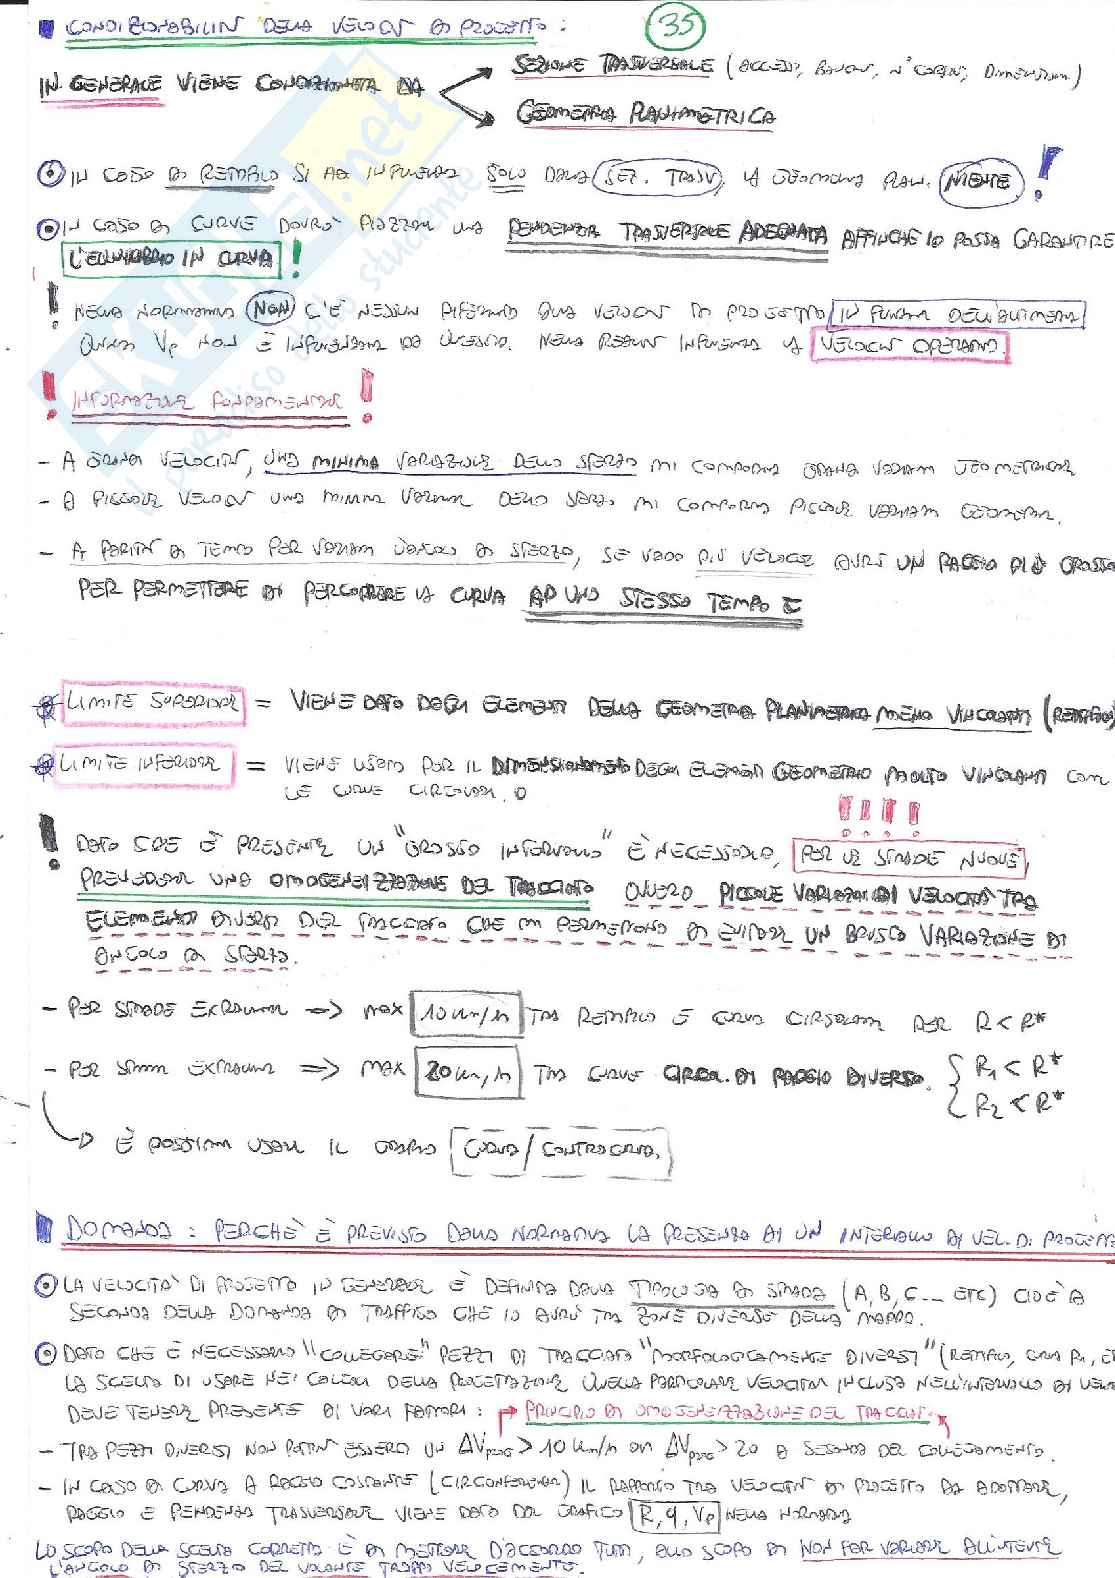 CONDIZIONABILITÀ DELLA VELOCITÀ DI PROGETTO :
35
IN GENERALE VIENE CONDIZIONATA DA
SEZIONE TRASVERSALE (ACCESSI, BANCH, N° CORSIE, DIMENSIONI)
GEOMETRIA PLANIMETRICA
IN CASO DI RETTIFILO SI HA INFLUENZA SOLO DALLA SEZ. TRASV, LA GEOMETRIA PLAN. NIENTE !
IN CASO DI CURVE DOVRÒ PIAZZARE UNA PENDENZA TRASVERSALE ADEGUATA AFFINCHÈ IO POSSA GARANTIRE
L'EQUILIBRIO IN CURVA !
! NELLA NORMATIVA NON C'È NESSUN RIFERIMENTO ALLA VELOCITÀ DI PROGETTO IN FUNZIONE DELL'ALTIMETRIA
QUINDI Vp NON È INFLUENZATA DA QUESTO. NELLA REALTÀ INFLUENZA LA VELOCITÀ OPERATIVA.
! INFORMAZIONE FONDAMENTALE !
- A GRANDI VELOCITÀ, UNA MINIMA VARIAZIONE DELLO STERZO MI COMPORTA GRANDI VARIAZIONI GEOMETRICHE
- A PICCOLE VELOCITÀ UNA MINIMA VARIAZIONE DELLO STERZO MI COMPORTA PICCOLE VARIAZIONI GEOMETRICHE.
- A PARITÀ DI TEMPO PER VARIARE L'ANGOLO DI STERZO, SE VADO PIÙ VELOCE AVRÒ UN RAGGIO PIÙ GROSSO
PER PERMETTERE DI PERCORRERE LA CURVA AD UNO STESSO TEMPO T
LIMITE SUPERIORE = VIENE DATO DAGLI ELEMENTI DELLA GEOMETRIA PLANIMETRICA MENO VINCOLANTI (RETTIFILO)
LIMITE INFERIORE = VIENE USATO PER IL DIMENSIONAMENTO DEGLI ELEMENTI GEOMETRICI MOLTO VINCOLANTI COME
LE CURVE CIRCOLARI.
! ! ! !
! DATO CHE È PRESENTE UN "GROSSO INTERVALLO" È NECESSARIO, PER LE STRADE NUOVE,
PREVEDERE UNA OMOGENEIZZAZIONE DEL TRACCIATO OVVERO PICCOLE VARIAZIONI DI VELOCITÀ TRA
ELEMENTI DIVERSI DEL TRACCIATO CHE MI PERMETTONO DI EVITARE UN BRUSCO VARIAZIONE DI
ANGOLO DI STERZO.
- PER STRADE EXTRAURBANE => MAX 10 Km/h TRA RETTIFILO E CURVA CIRCOLARE PER R < R*
- PER STRADE EXTRAURBANE => MAX 20 Km/h TRA CURVE CIRCOL. DI RAGGIO DIVERSO. { R1 < R*
R2 < R*
È POSSIBILE USARE IL GRAFICO CURVA/CONTROCURVA.
DOMANDA : PERCHÈ È PREVISTO DALLA NORMATIVA LA PRESENZA DI UN INTERVALLO DI VEL. DI PROGETTO
LA VELOCITÀ DI PROGETTO IN GENERALE È DEFINITA DALLA TIPOLOGIA DI STRADA (A, B, C... ETC) CIOÈ A
SECONDA DELLA DOMANDA DI TRAFFICO CHE IO AVRÒ TRA ZONE DIVERSE DELLA MAPPA.
DATO CHE È NECESSARIO "COLLEGARE" PEZZI DI TRACCIATO "MORFOLOGICAMENTE DIVERSI" (RETTIFILO, CURVA R1,
LA SCELTA DI USARE NEI CALCOLI DELLA PROGETTAZIONE QUELLA PARTICOLARE VELOCITÀ INCLUSA NELL'INTERVALLO DI
DEVE TENERE PRESENTE DI VARI FATTORI : PRINCIPIO DI OMOGENEIZZAZIONE DEL TRACCIATO.
- TRA PEZZI DIVERSI NON POTRÀ ESSERCI UN ΔVprog > 10 Km/h OR ΔVprog > 20 A SECONDA DEL COLLEGAMENTO.
- IN CASO DI CURVA A RAGGIO COSTANTE (CIRCONFERENZA) IL RAPPORTO TRA VELOCITÀ DI PROGETTO DA ADOTTARE,
RAGGIO E PENDENZA TRASVERSALE VIENE DATO DAL GRAFICO R, q, Vp NELLA NORMATIVA
LO SCOPO DELLA SCELTA CORRETTA È DI METTERE D'ACCORDO TUTTI, ALLO SCOPO DI NON FAR VARIARE ALL'UTENTE
L'ANGOLO DI STERZO DEL VOLANTE TROPPO VELOCEMENTE.